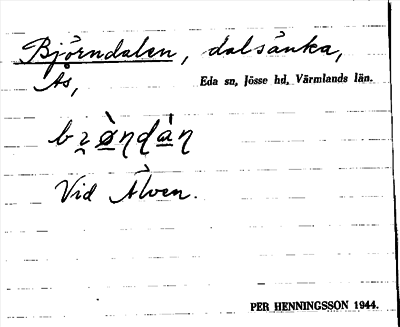 Björndalen, dalsänka,
Ås, Eda sn, Jösse hd, Värmlands län.
Vid Älven.
PER HENNINGSSON 1944.